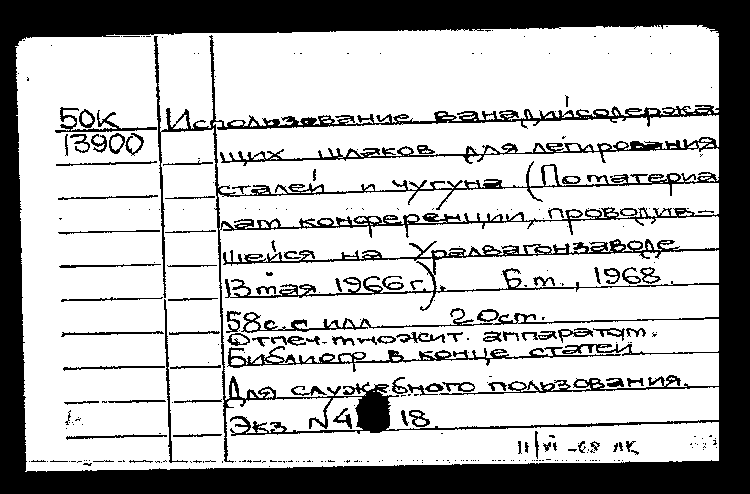 50К Использование ванадийсодержа-
13900
щих шлаков для легирования
сталей и чугуна. (По материа
лам конференции, проводив-
шейся на Уралвагонзаводе
13 мая 1966 г.). Б.м., 1968.
58 с. с илл 20 см.
Отпеч. множит. аппаратом.
Библиогр в конце статей.
Для служебного пользования.
Экз. №4 18.
11/VI -68 ЛК